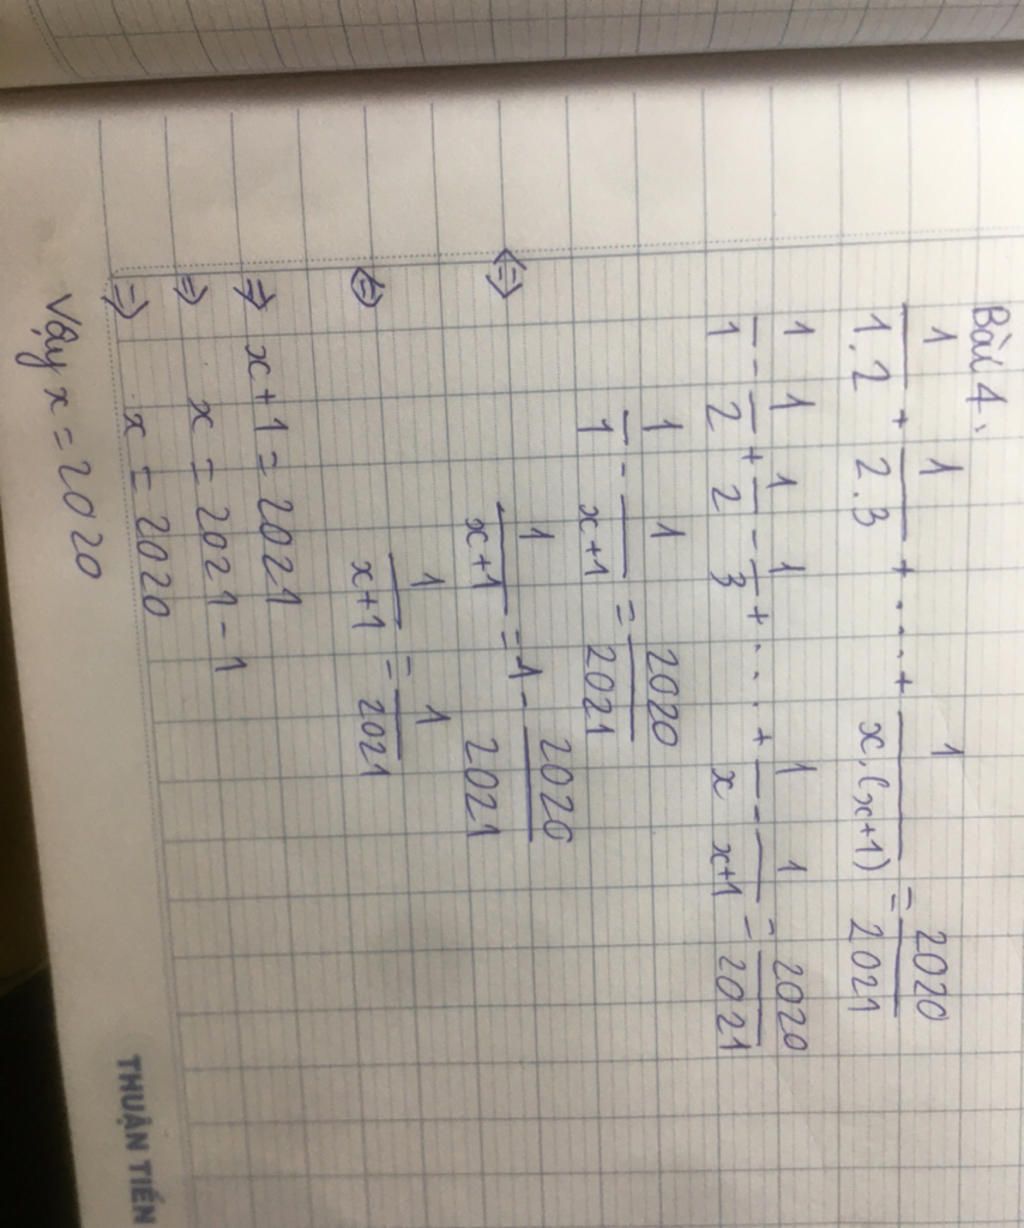 Bài 4.
1/1.2 + 1/2.3 + ... + 1/x.(x+1) = 2020/2021
1/1 - 1/2 + 1/2 - 1/3 + ... + 1/x - 1/x+1 = 2020/2021
1/1 - 1/x+1 = 2020/2021
⇔ 1/x+1 = 1 - 2020/2021
⇔ 1/x+1 = 1/2021
⇒ x+1 = 2021
⇒ x = 2021 - 1
⇒ x = 2020
Vậy x = 2020
THUẬN TIẾN